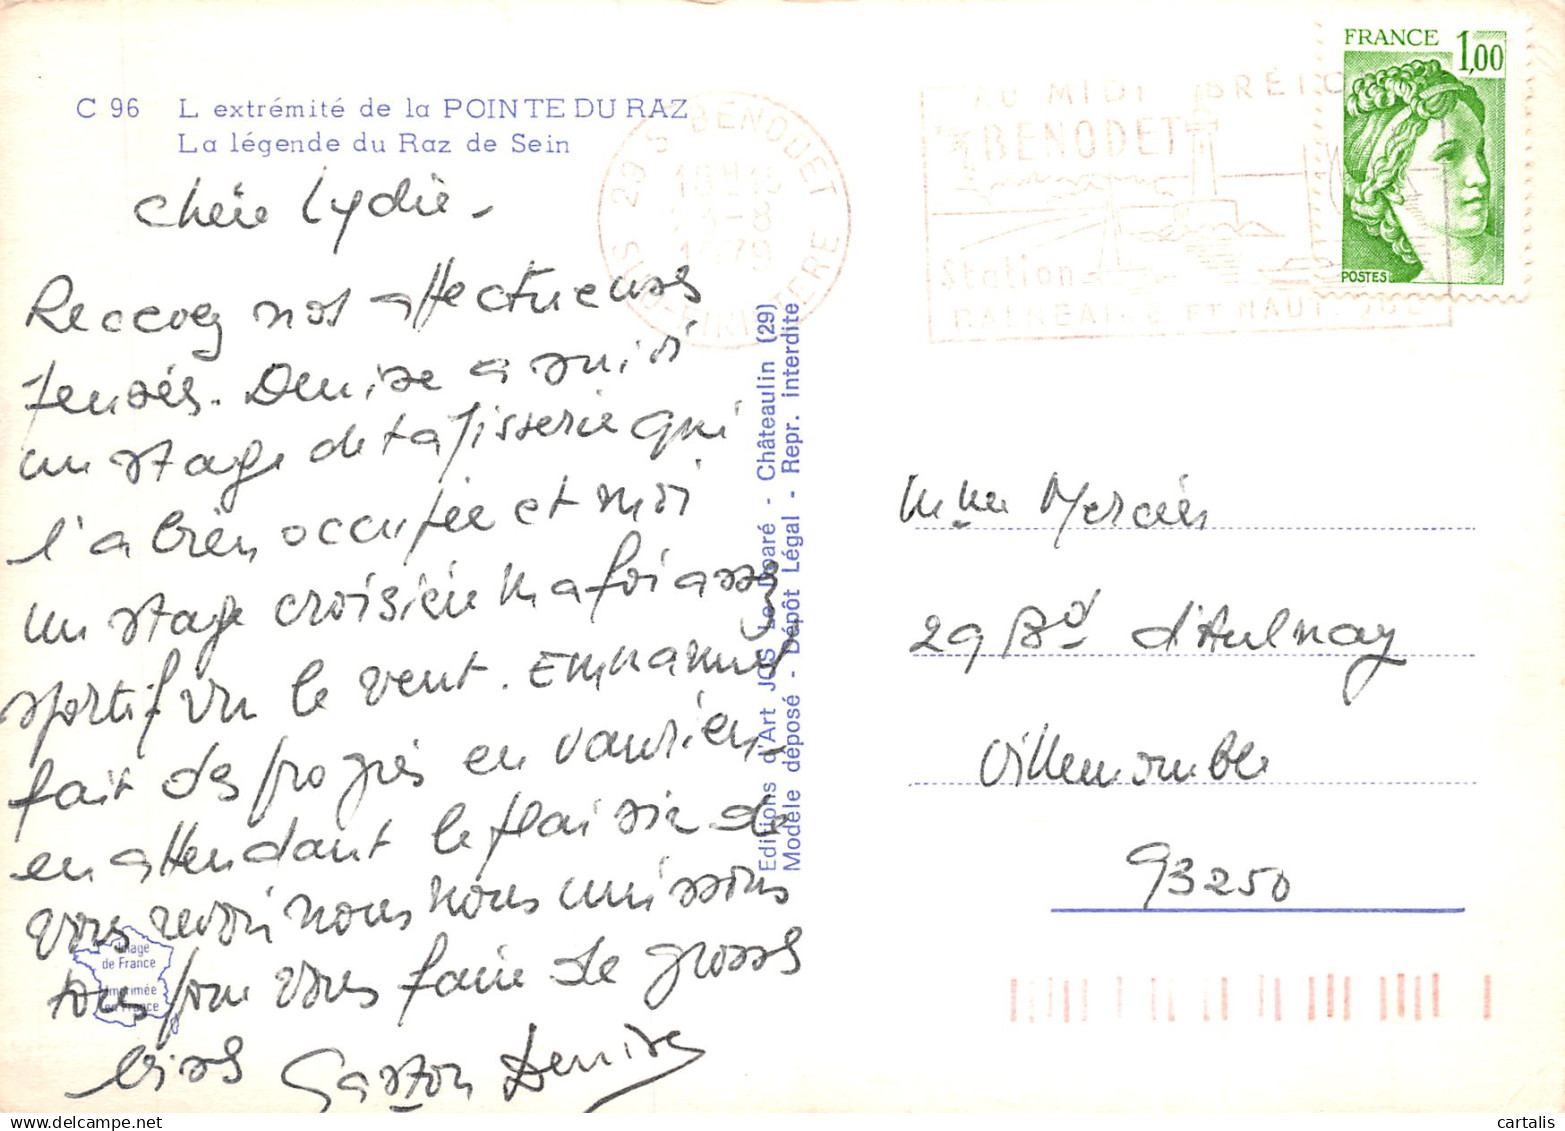 C 96 L extrémité de la POINTE DU RAZ
La légende du Raz de Sein
Chère Lydie -
Recevez nos affectueuses
pensées. Denise a suivi
un stage de tapisserie qui
l'a bien occupée et moi
un stage croisière ma foi assez
sportif vu le vent. Emmanuel
fait des progrès en
en attendant le plaisir de
vous revoir nous nous unissons
tous pour vous faire de grosses
bises Gaston Denise
Image
de France
Imprimée
en France
Editions d'Art JOS Le Doaré - Châteaulin (29)
Modèle déposé - Dépôt Légal - Repr. interdite
29 S BENODET
18H15
-8
1979
SUD-FINISTERE
AU MIDI BRETON
BENODET
Station
BALNEAIRE ET NAUTIQUE
FRANCE 1,00
POSTES
Mme Mercier
29 Bd d'Aulnay
Villemomble
93250
cartalis